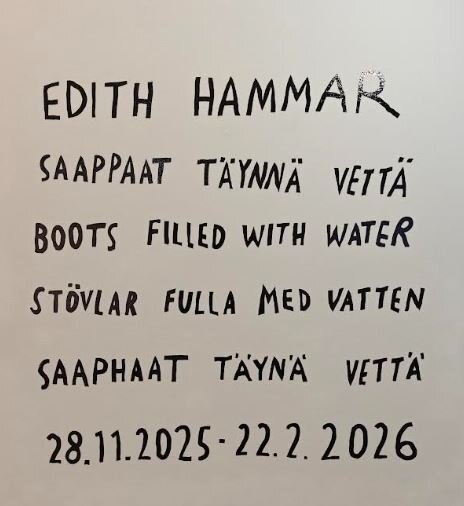 EDITH HAMMAR
SAAPPAAT TÄYNNÄ VETTÄ
BOOTS FILLED WITH WATER
STÖVLAR FULLA MED VATTEN
SAAPHAAT TÄYNÄ VETTÄ
28.11.2025 - 22.2. 2026